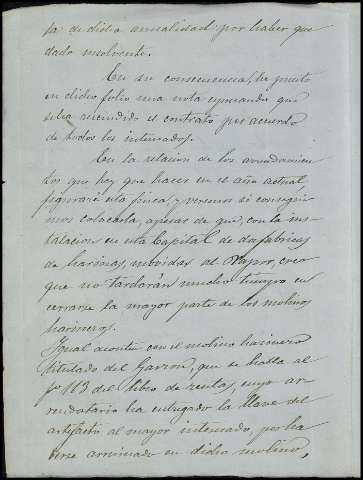 ta de dicha anualidad por haber que
dado insolvente.
En su consecuencia, he puesto
en dicho folio una nota expresando que
se ha rescindido el contrato por acuerdo
de todos los interesados.
En la relacion de los arrendamien
tos que hay que hacer en el año actual,
figurará esta finca, y veremos si consegui
mos colocarla, apesar de que, con la ins-
talacion en esta Capital de dos fabricas
de harinas, movidas al Vapor, creo
que no tardarán mucho tiempo en
cerrarse la mayor parte de los molinos
harineros.
Igual acontece con el molino harinero
titulado del Garron, que se habla al
fº 113 del libro de rentas, cuyo ar-
rendatario ha entregado la llave del
artefacto al mayor interesado, por ha
berse arruinado en dicho molino,